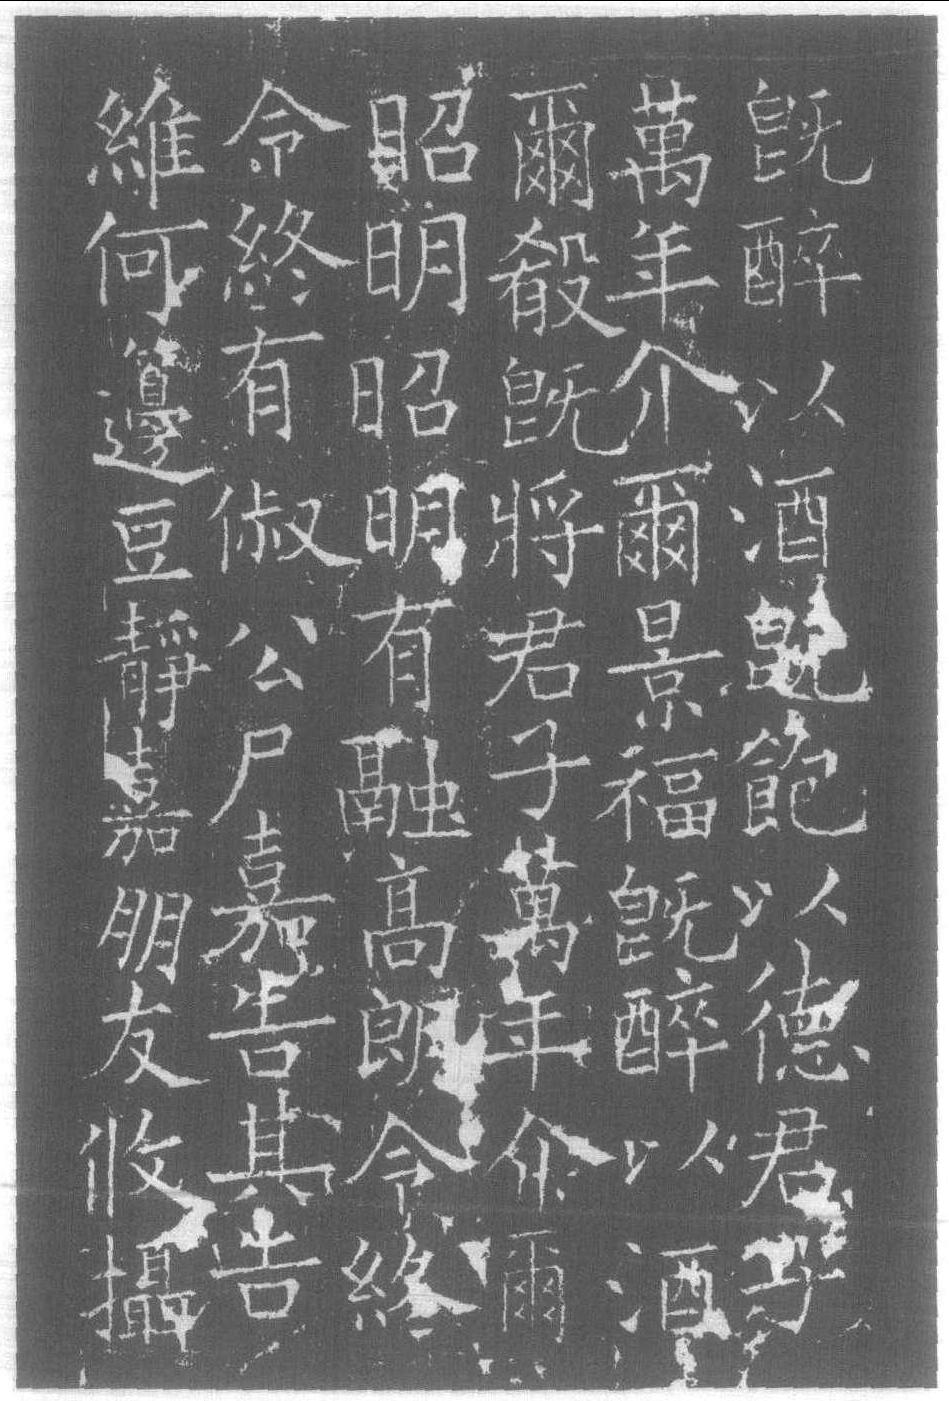 既醉以酒既飽以德君子
萬年介爾景福既醉以酒
爾殽既將君子萬年介爾
昭明昭明有融高朗令終
令終有俶公尸嘉告其告
維何籩豆靜嘉朋友攸攝